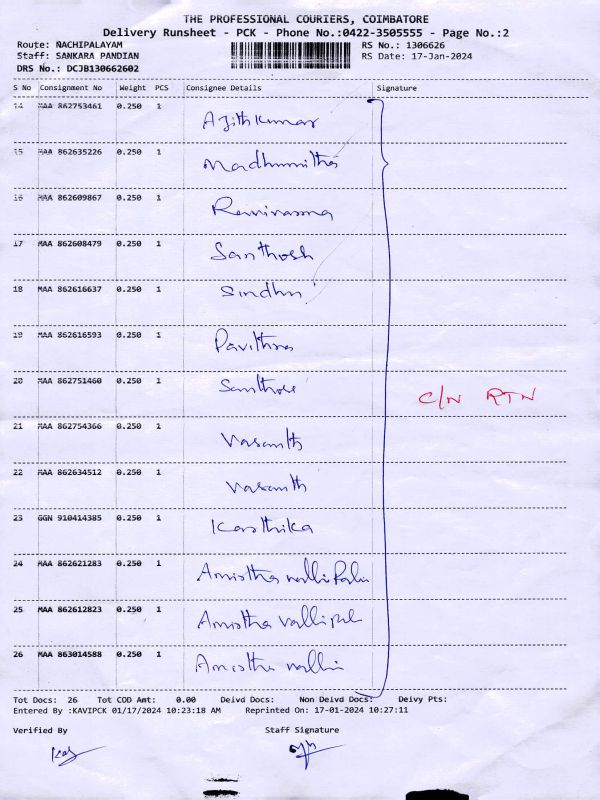 THE PROFESSIONAL COURIERS, COIMBATORE
Delivery Runsheet - PCK - Phone No.:0422-3505555 - Page No.:2
Route: NACHIPALAYAM RS No.: 1306626
Staff: SANKARA PANDIAN RS Date: 17-Jan-2024
DRS No.: DCJB130662602
S No Consignment No Weight PCS Consignee Details Signature
14 MAA 862753461 0.250 1 Ajithkumar
15 MAA 862635226 0.250 1 Madhumitha
16 MAA 862609867 0.250 1
17 MAA 862608479 0.250 1 Santhosh
18 MAA 862616637 0.250 1 Sindhu
19 MAA 862616593 0.250 1 Pavithra
20 MAA 862751460 0.250 1 C/N RTN
21 MAA 862754366 0.250 1 Vasanth
22 MAA 862634512 0.250 1 Vasanth
23 GGN 910414385 0.250 1 Karthika
24 MAA 862621283 0.250 1 Amirtha valli
25 MAA 862612823 0.250 1 Amirtha valli
26 MAA 863014588 0.250 1 Amirtha valli
Tot Docs: 26 Tot COD Amt: 0.00 Deivd Docs: Non Deivd Docs: Deivy Pts:
Entered By :KAVIPCK 01/17/2024 10:23:18 AM Reprinted On: 17-01-2024 10:27:11
Verified By Staff Signature